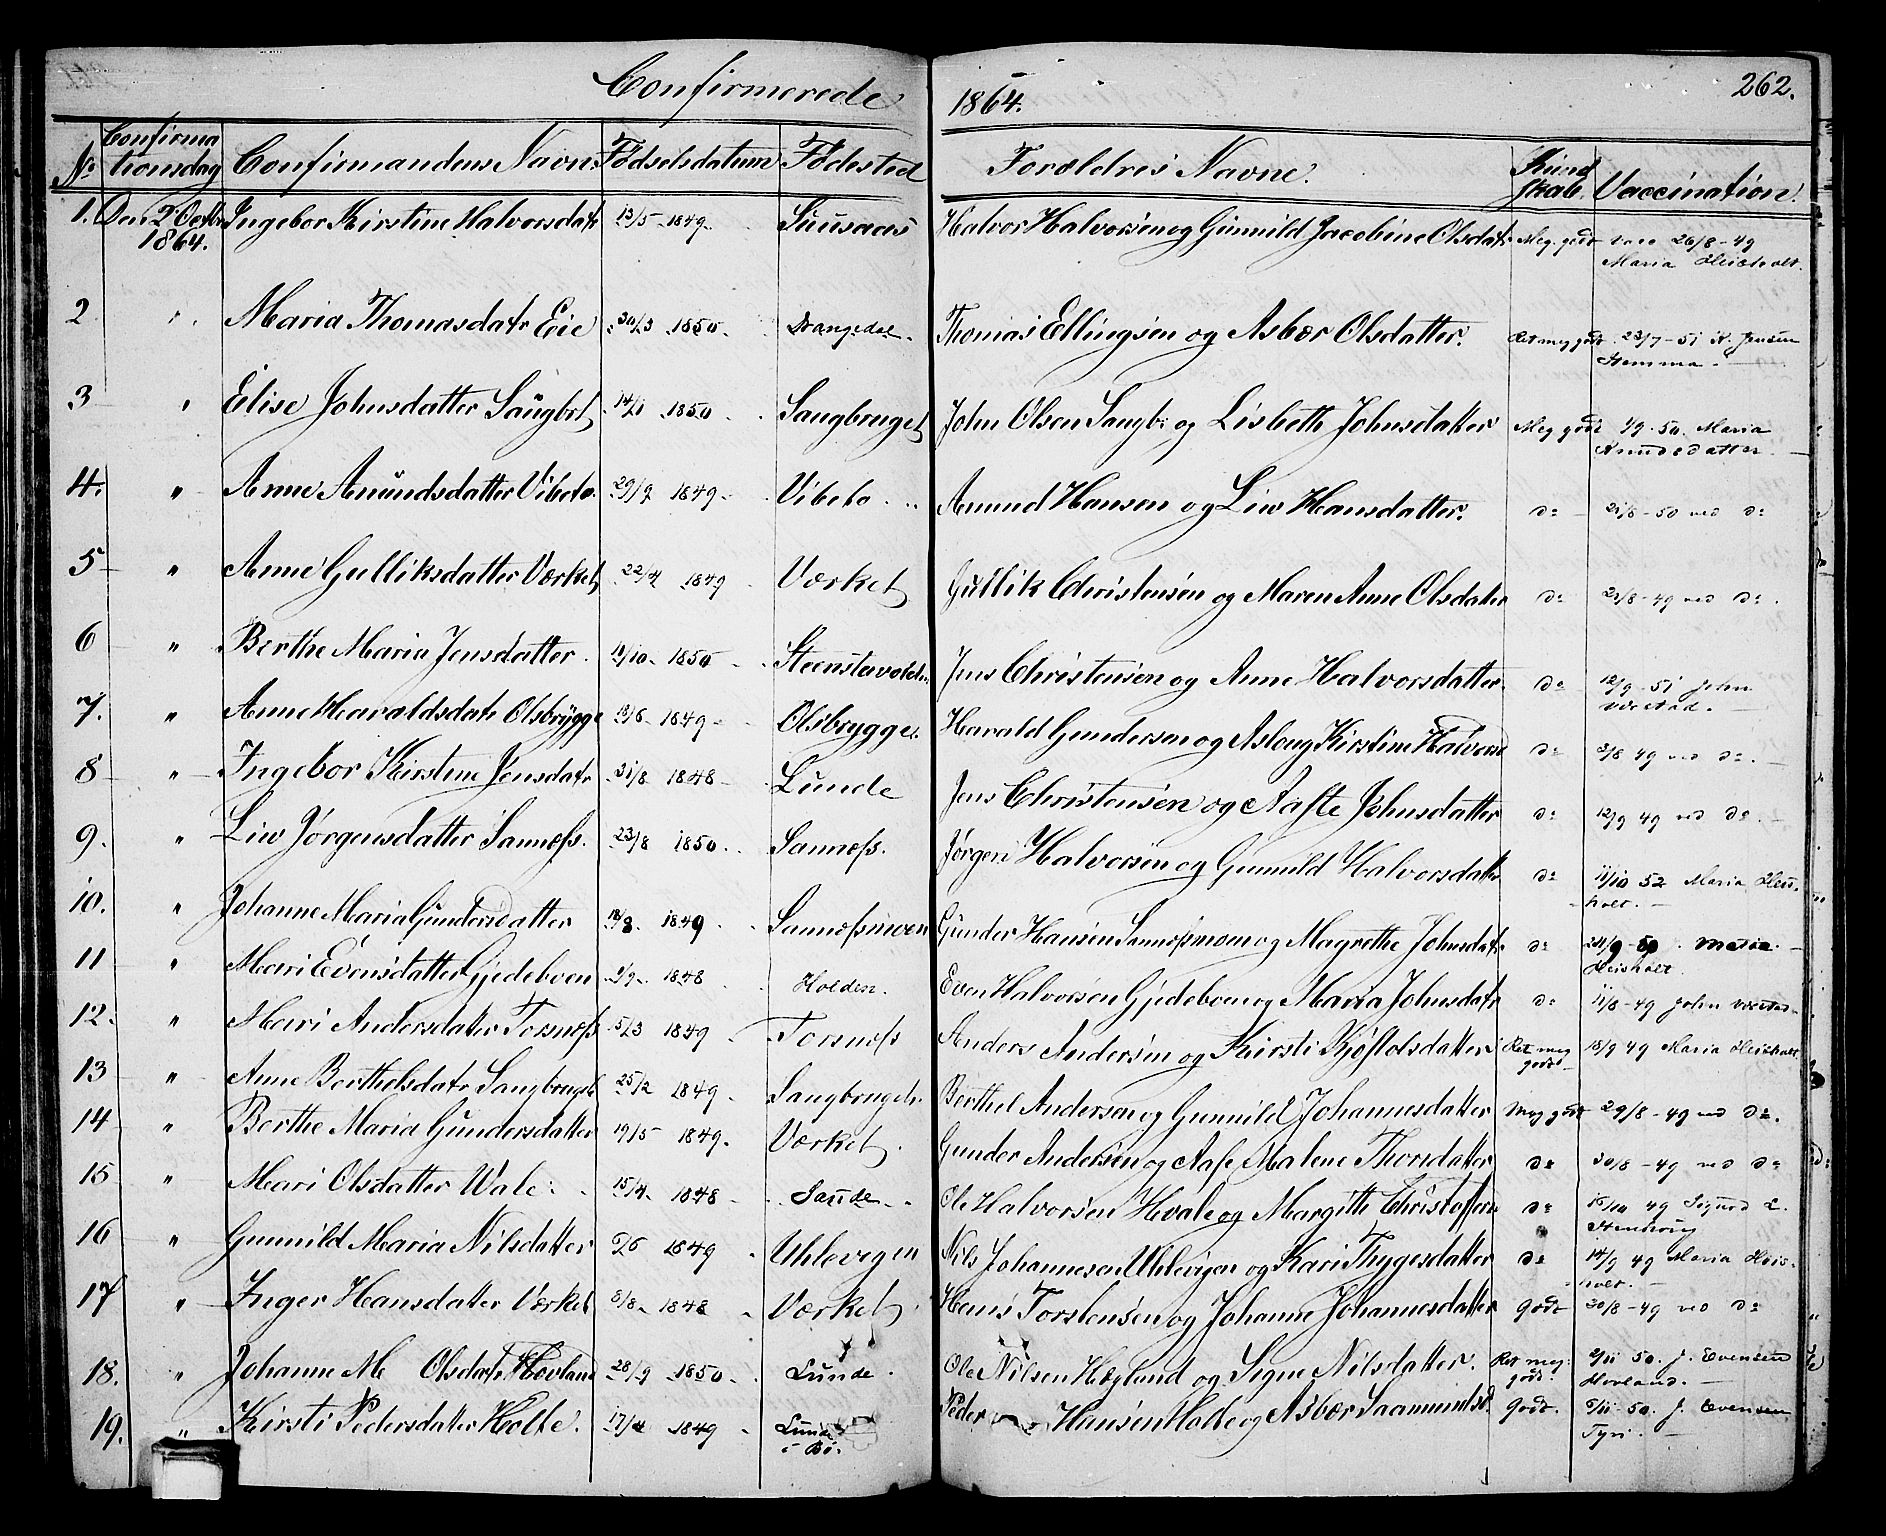 Confirmerede 1864. 262.
No Confirmationsdag Confirmandens Navn Fødselsdatum Fødested Forældres Navne. Kundskab. Vaccination.
1. Den 2 Octbr 1864. Ingebor Kirstine Halvorsdatr 13/5 1849 Halvor Halvorsen og Gunnild Jacobine Olsdatr Meg. godt vacc 26/8-49
Maria Heistholt.
2 " Maria Thomasdatr Eie 30/3 1850 Drangedal Thomas Ellingsen og Asbør Olsdatter. Ret meg godt 23/7-51 K. Jensen
Stemma.
3 " Elise Johnsdatter Saugbrt 14/1 1850 Saugbruget John Olsen Saugb: og Lisbeth Johnsdatter Meg godt 4/9. 50. Maria
4. " Anne Amundsdatter Vibeto 29/9 1849 Vibeto Amund Hansen og Liw Hansdatter. do 21/8-50 ved do
5 " Anne Gulliksdatter Værket 22/4 1849 Værket Gullik Christensen og Maren Anne Olsdater do 21/8-49 ved do.
6 " Berthe Maria Jensdatter. 11/10 1850 Jens Christensen og Anne Halvorsdatter. do 12/9-51 John
7. " Anne Haraldsdatr Olsbrygge 18/6 1849 Olsbrygge. Harald Gundersen og Aslaug Kirstine Halvorsd do 3/8 49 ved do.
8 " Ingebor Kirstine Jensdatr 31/8 1848 Lunde Jens Christensen og Aaste Johnsdatter do 12/9 49 ved do.
9. " Liw Jørgensdatter Sanness. 23/8 1850 Sanness. Jørgen Halvorsen og Gunnild Halvorsdattr do 11/10 52 Maria Heistholt.
10. " Johanne Maria Gundersdatter 18/8 1849 Gunder Hansen og Magrethe Johnsdatr do Maria
Heisholt.
11 " Mari Evensdatter Gjedeboen 2/9 1848 Holden. Even Halvorsen Gjedeboen og Maria Johnsdatr do 11/8-49 John
12. " Mari Andersdatter Torsness 5/3 1849 Torsness Anders Andersen og Kirsti Kjøstolsdatter Ret meg godt 18/9 49 Maria Heistholt
13 " Anne Berthelsdatr Saugbruget 25/2 1849 Saugbruget. Berthel Andersen og Gunnild Johannesdatter Meg godt 29/8-49 ved do.
14 " Berthe Maria Gundersdatter 19/5 1849. Værket. Gunder Andersen og Aase Malene Thorsdatter do 30/8-49 ved do
15 " Mari Olsdatter Wale 15/4 1848 Saude Ole Halvorsen Hvale og Margith Christoffersd do 16/10 49 Sigurd L.
16 " Gunnild Maria Nilsdatter 1849 Uhlevigen Nils Johannesen Uhlevigen og Kari Thygesdatter do 14/9 49 Maria Heisholt.
17 " Inger Hansdatter Værket 8/8 1848 Værket. Hans Torstensen og Johanne Johannesdatter Godt 30/8-49 ved do
18. " Johanne M Olsdatr Hovland 28/9 1850 Lunde. Ole Nilsen og Signe Nilsdatter. Ret meg: godt. 2/11 50. J. Evensen
Hovland.
19. " Kirsti Pedersdatter Holte. 17/4 1849 Lunde i Bø. Peder Hansen Holte og Asbør Saamundsd. Godt. 5/11-50. J. Evensen
Tyri.